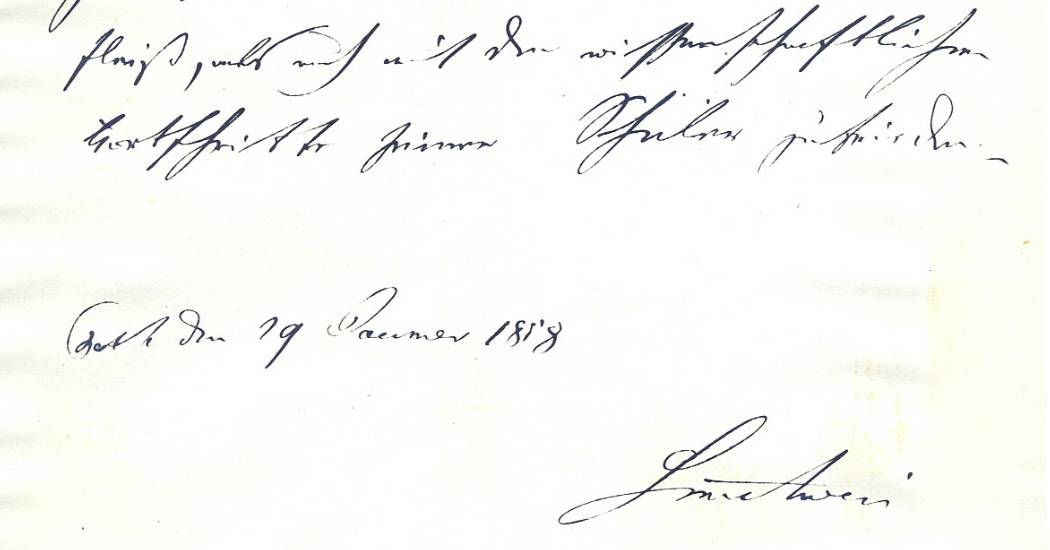 Fleiß, als auch mit den wissenschaftlichen
Fortschritte seiner Schüler zufrieden.
den 29 Jänner 1858